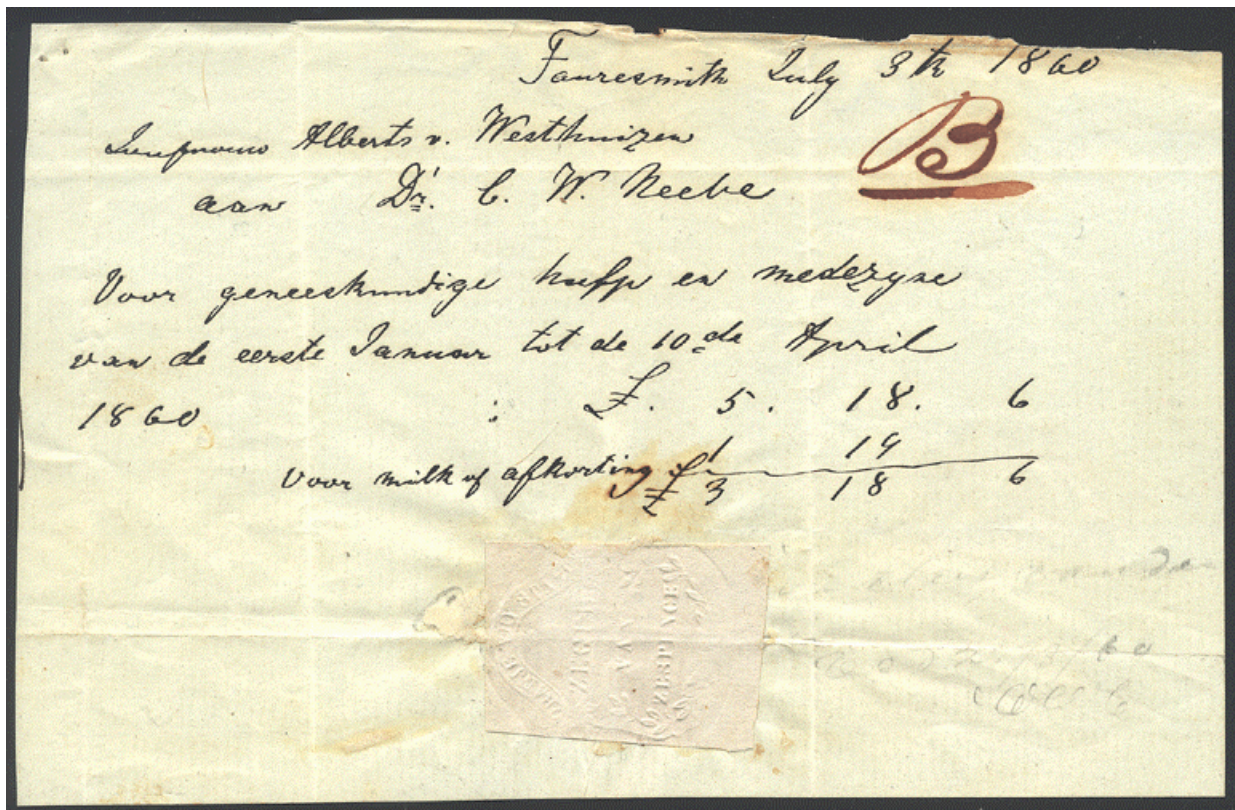 Fauresmith July 3th 1860
B
Juufprouw Alberts v. Westhuizen
aan Dr. C. W. Neebe
Voor geneeskundige hulfp en medezyne
van de eerste Januar tot de 10de April
1860 : £. 5. 18. 6
1 19
Voor milk of afkorting
£ 3 18 6
ZEGEL
VAN
ZESPENCE